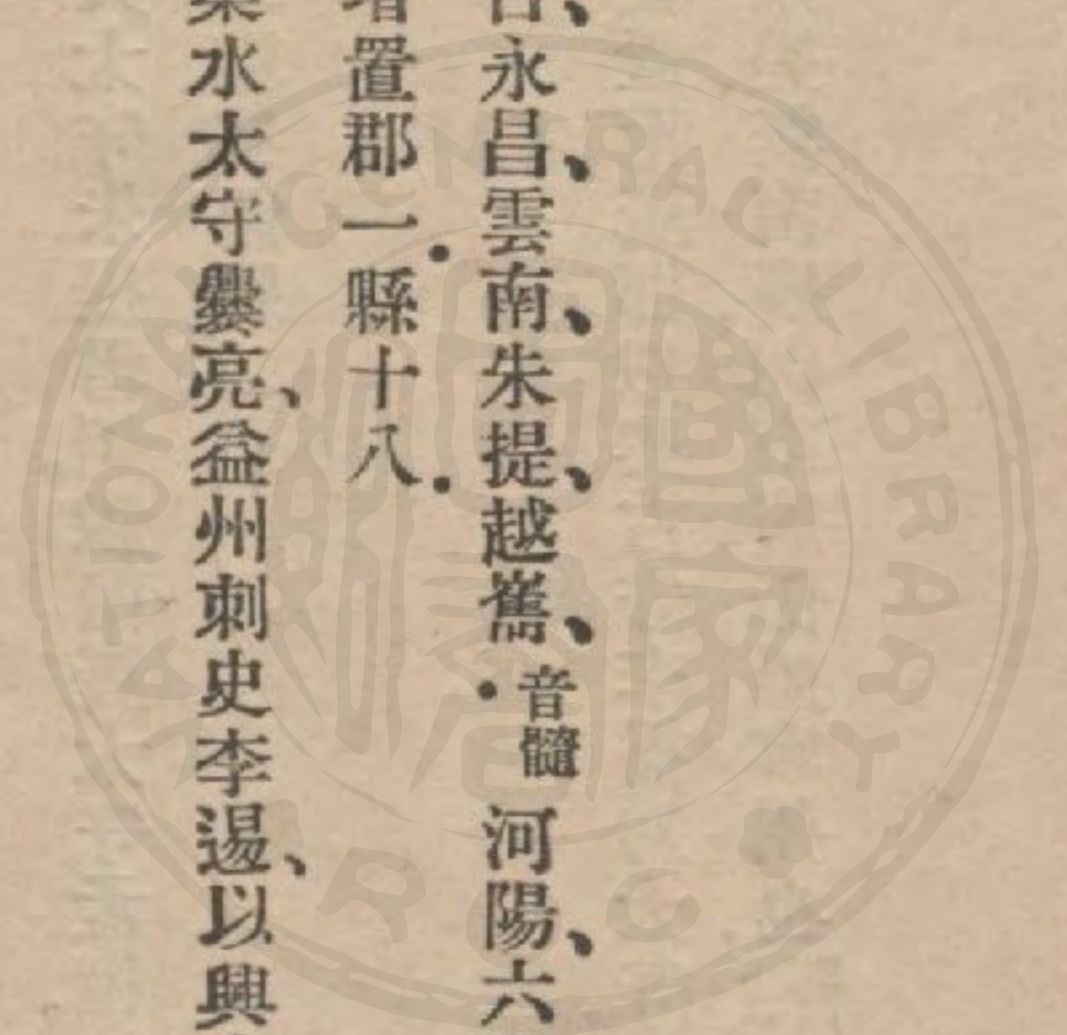 、永昌、雲南、朱提、越巂、音髓河陽、六
置郡一.縣十八.
水太守爨亮、益州刺史李逷、以興
NATIONAL CENTRAL LIBRARY
R.O.C